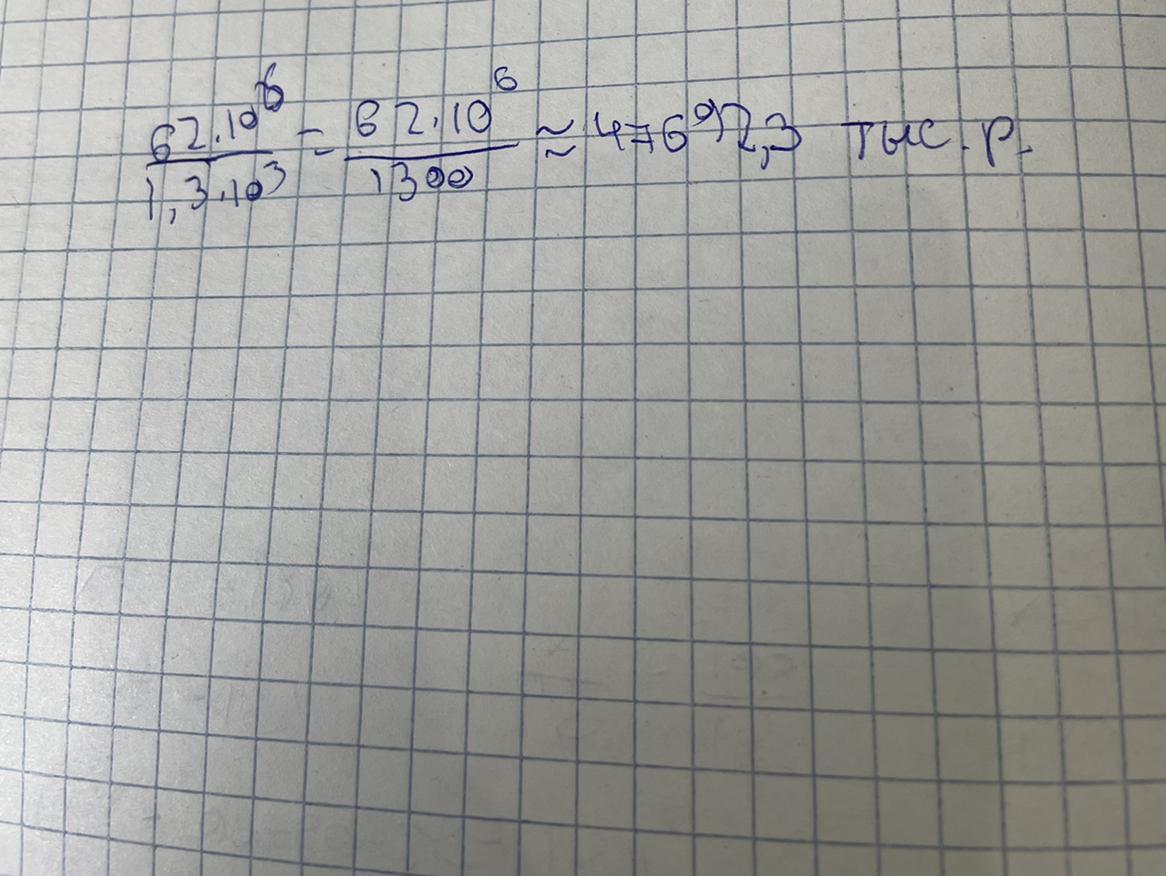 62·10⁶/1,3·10³ = 62·10⁶/1300 ≈ 47692,3 тыс. р.